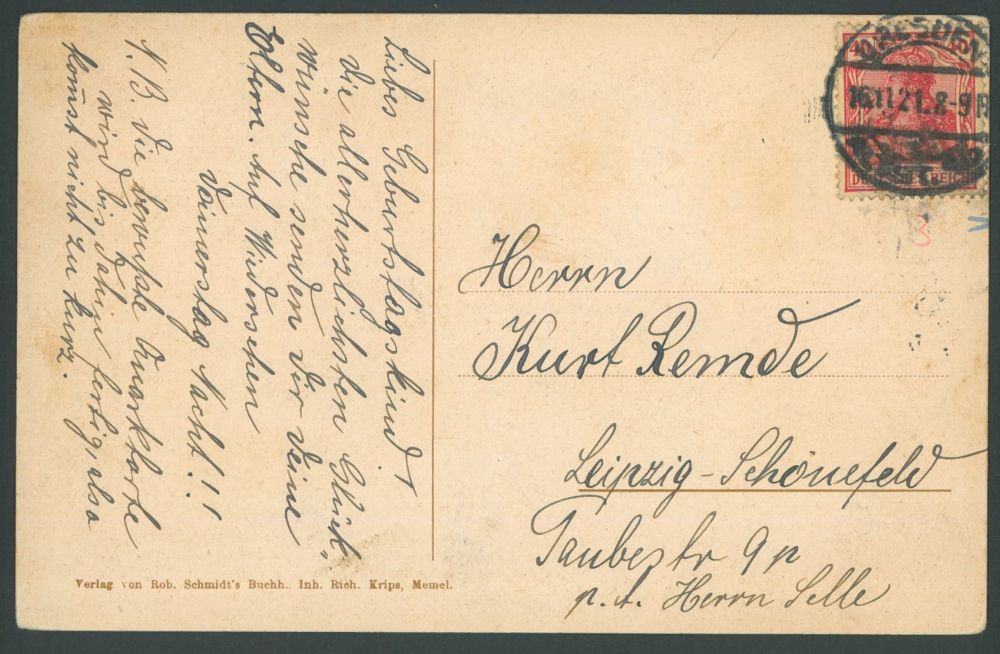 Liebes Geburtstagskind!
Die allerherzlichsten Glück-
wünsche senden Dir Deine
Eltern. Auf Wiedersehen
Donnerstag Nacht!!
N.B. Die bewußte Quarktorte
wird bis dahin fertig, also
komst nicht zu kurz.
Verlag von Rob. Schmidt's Buchh., Inh. Rich. Krips, Memel.
40
DRESDEN
16.11.21. 8-9
DEUTSCHES REICH
3
Herrn
Kurt Remde
Leipzig-Schönefeld
Taubestr 9 p
p. A. Herrn Selle